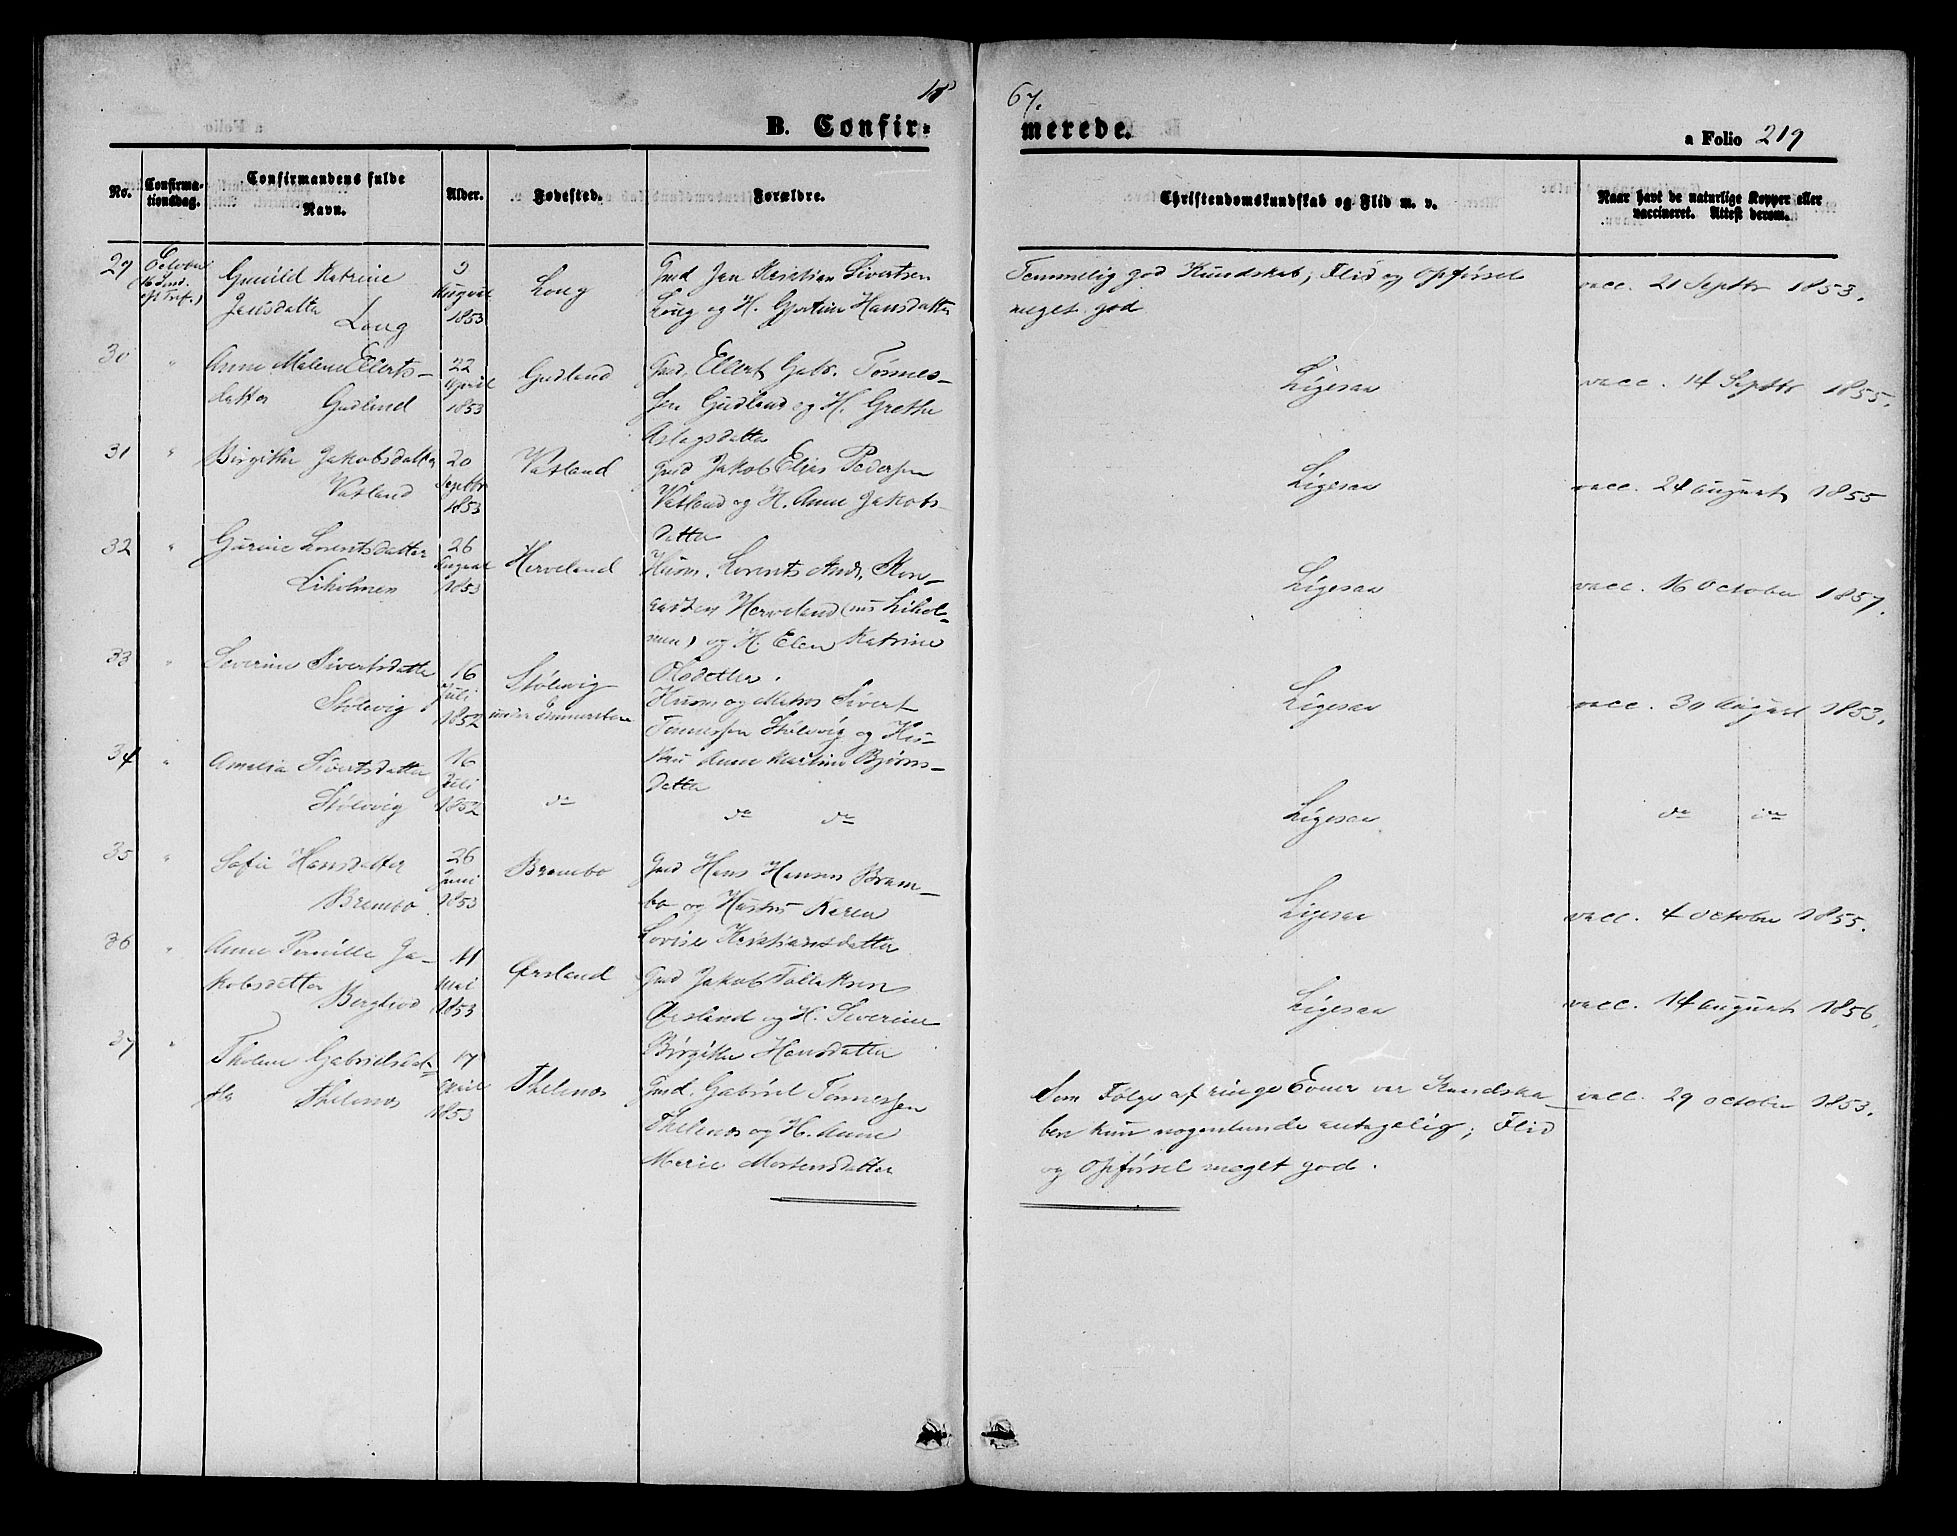 18 67.
B. Confir- merede.
a Folio 219
No.
Confirma-
tionsdag.
Confirmandens fulde
Navn.
Alder.
Fødested.
Forældre.
Christendomskundskab og Flid m. v.
Naar havt de naturlige Kopper eller
vaccineret. Attest derom.
29 October
16 Sønd.
eft Tref.)
Gunild Katrine
Jansdatter
Loug
9
August
1853
Loug
Gmd Jan Kristian Sivertsen
Loug og H. Gjertine Hansdatter
Temmelig god Kundskab; Flid og Opførsel
meget god
vacc. 21 Septbr 1853.
30 "
Anne Malene Ellerts-
datter Gudland
22
April
1853
Gudland
Gmd. Ellert Gabr. Tønnes-
sen Gudland og H. Grethe
Aslagsdatter
Ligesaa
vacc. 14 Septbr 1855.
31 "
Birgithe Jakobsdatter
Vatland
20
Septbr
1853
Vatland
Gmd Jakob Elias Pedersen
Vatland og H. Anne Jakobs-
datter
Ligesaa
vacc. 24 august 1855
32 "
Gurine Lorentsdatter
Liholmen
26
August
1853
Herveland
Husm. Lorents Andr.
Herveland (nu Lihol-
men) og H. Elen Katrine
Olsdatter.
Ligesaa
vacc. 16 October 1857.
33 "
Severine Sivertsdatter
Stølevig
16
Juli
1852
Stølevig
under
Husm og Matros Sivert
Tønnessen Stølevig og Hu-
stru Anne Martine Bjørns-
datter
Ligesaa
vacc. 30 August 1853.
34 "
Amalia Sivertsdatter
Stølevig
16
Juli
1852
do
do do
Ligesaa
do do
35 "
Sofie Hansdatter
Brembo
26
Juni
1853
Brembo
Gmd Hans Hansen Brem-
bo og Hustru Karen
Lovise Kristiansdatter
Ligesaa
vacc. 4 October 1855.
36 "
Anne Pernille Ja-
kobsdatter
11
Mai
1853
Ørsland
Gmd Jakob Tollaksen
Ørsland og H. Severine
Birgithe Hansdatter
Ligesaa
vacc. 14 august 1856.
37 "
Tholene Gabrielsdat-
ter Thelenæs
17
April
1853
Thelenæs
Gmd. Gabriel Tønnessen
Thelenæs og H. Anne
Marie Mortensdatter
Som Følge af ringe Evner var Kundska-
ben kun nogenlunde antagelig; Flid
og Opførsel meget god.
vacc. 29 October 1853.